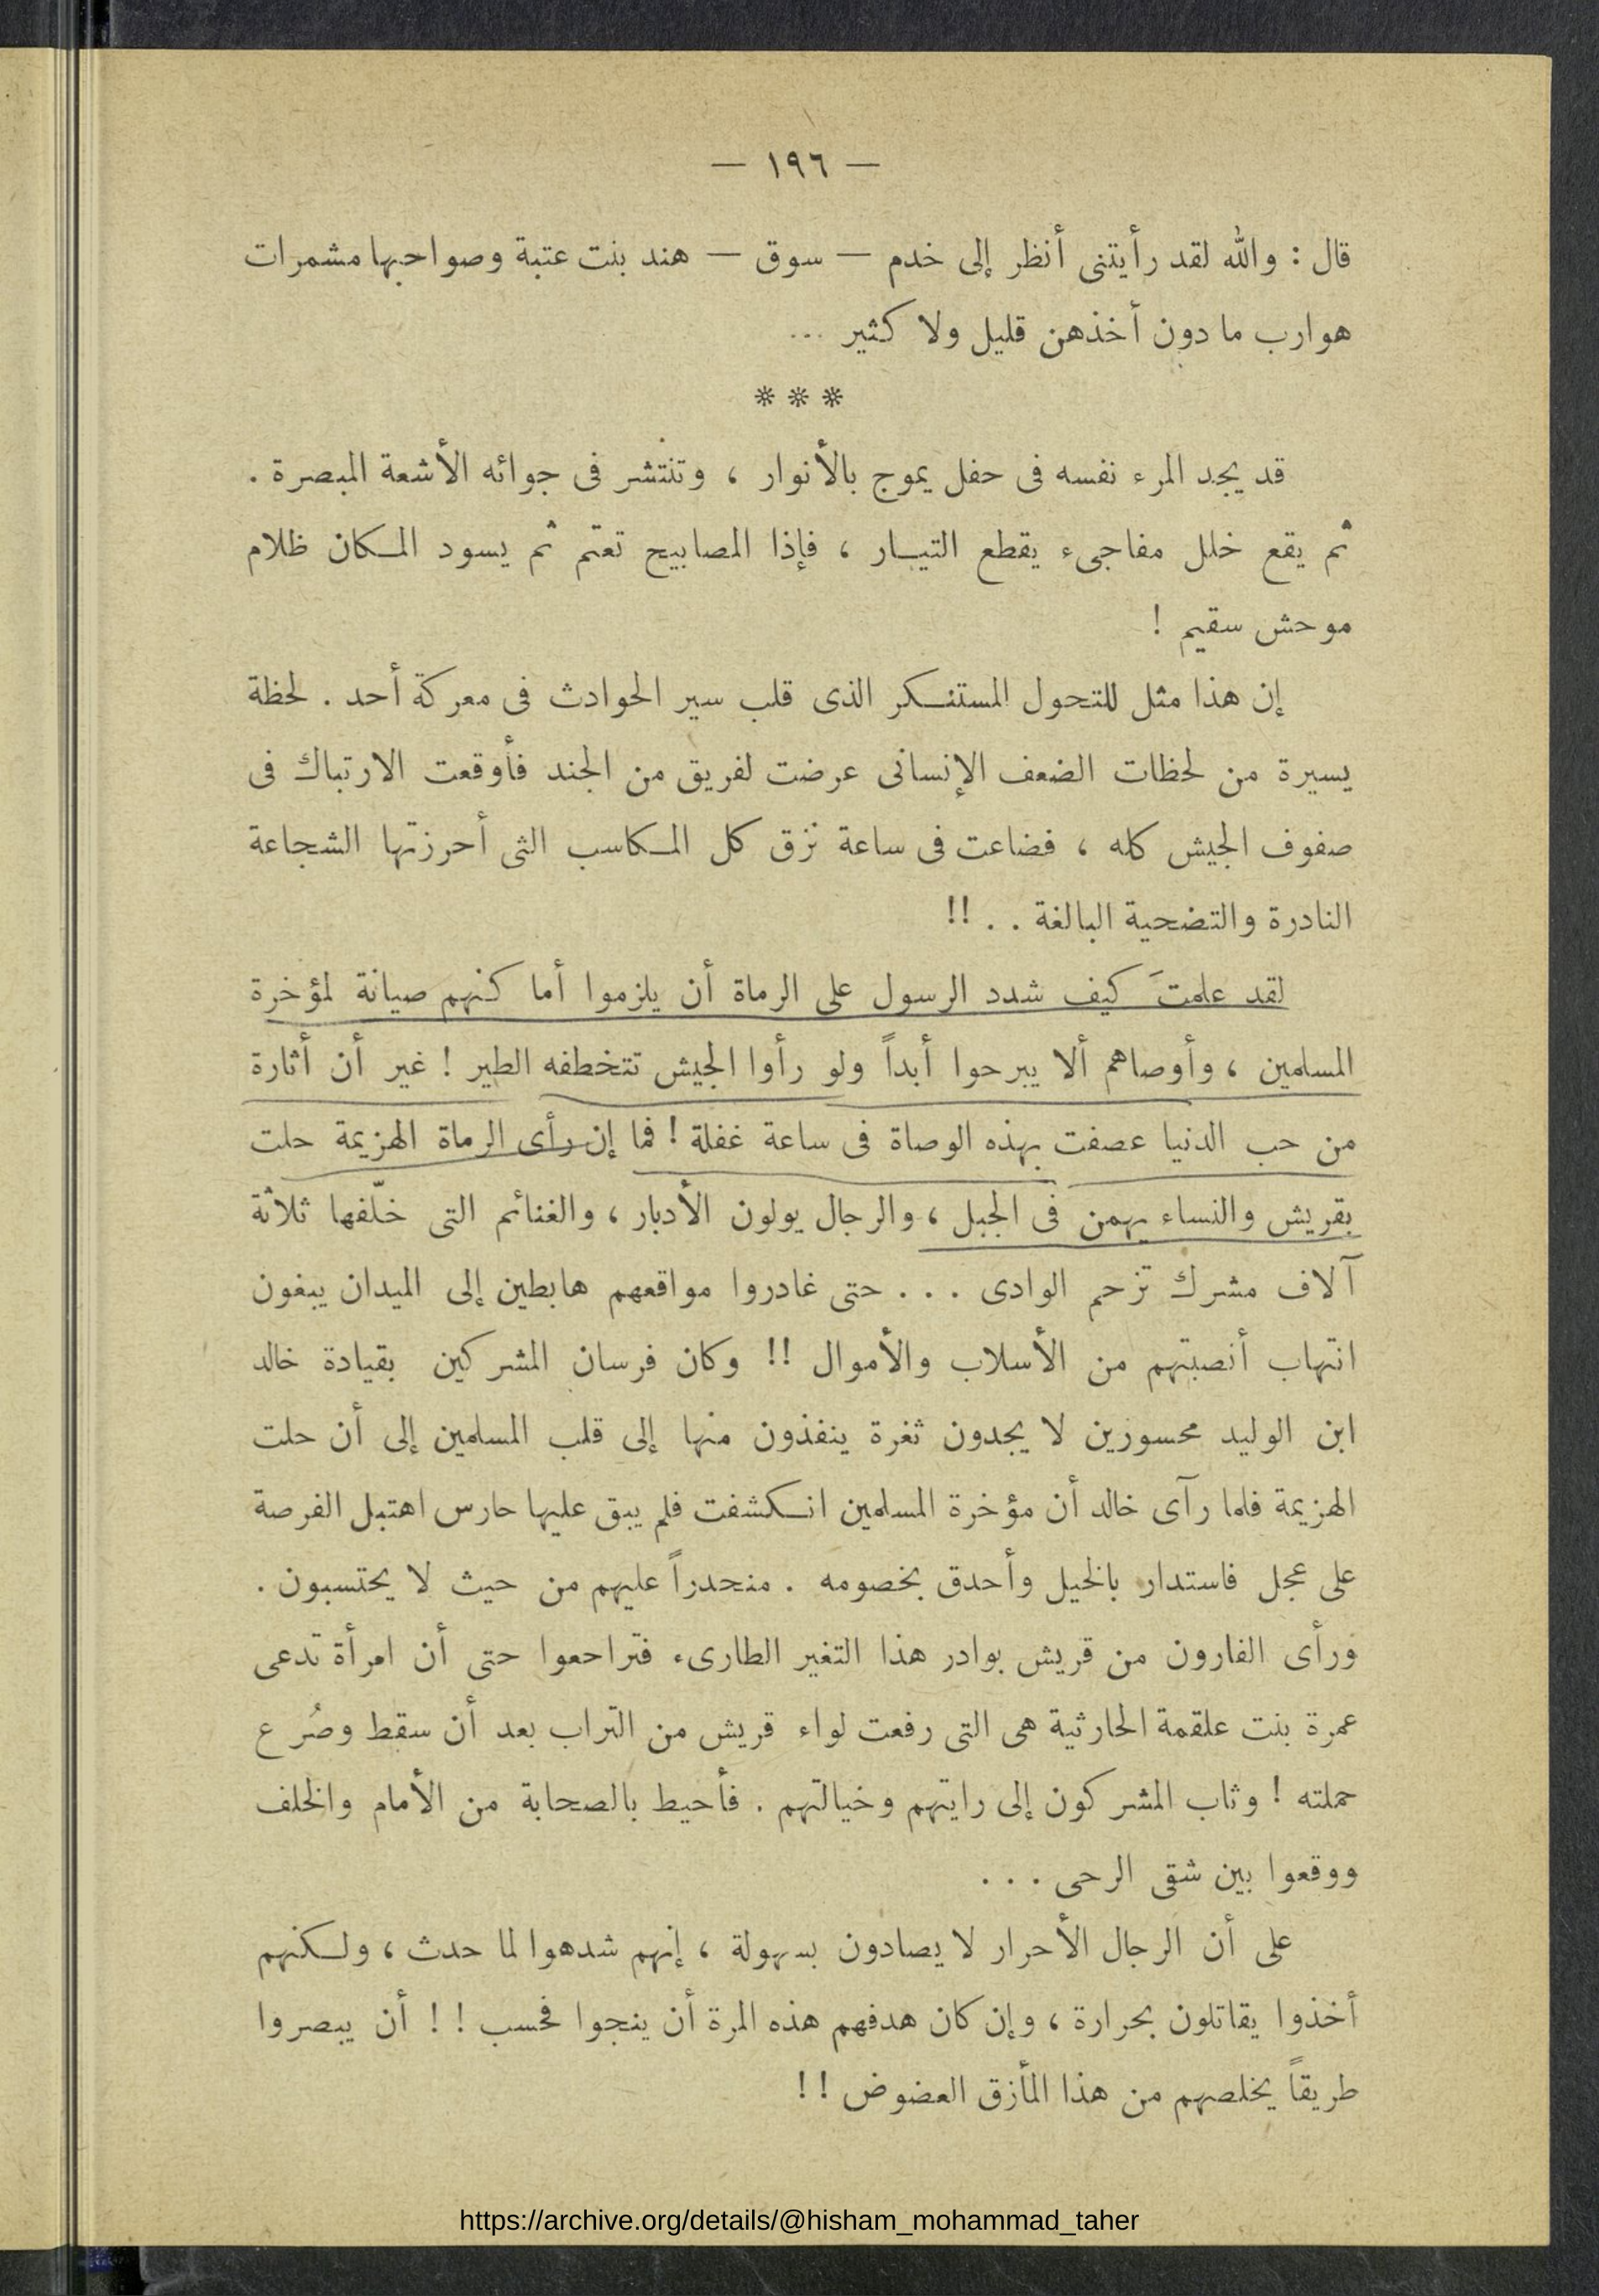 — ١٩٦ —
قال : والله لقد رأيتنى أنظر إلى خدم — سوق — هند بنت عتبة وصواحبها مشمرات
هوارب ما دون أخذهن قليل ولا كثير ...
* * *
قد يجد المرء نفسه فى حفل يموج بالأنوار ، وتنتشر فى جوائه الأشعة المبصرة .
ثم يقع خلل مفاجىء يقطع التيار ، فإذا المصابيح تعتم ثم يسود المكان ظلام
موحش سقيم !
إن هذا مثل للتحول المستنكر الذى قلب سير الحوادث فى معركة أحد . لحظة
يسيرة من لحظات الضعف الإنسانى عرضت لفريق من الجند فأوقعت الارتباك فى
صفوف الجيش كله ، فضاعت فى ساعة نزق كل المكاسب التى أحرزتها الشجاعة
النادرة والتضحية البالغة . . !!
لقد علمتَ كيف شدد الرسول على الرماة أن يلزموا أماكنهم صيانة لمؤخرة
المسلمين ، وأوصاهم ألا يبرحوا أبداً ولو رأوا الجيش تتخطفه الطير ! غير أن أثارة
من حب الدنيا عصفت بهذه الوصاة فى ساعة غفلة ! فما إن رأى الرماة الهزيمة حلت
بقريش والنساء يهمن فى الجبل ، والرجال يولون الأدبار ، والغنائم التى خلّفها ثلاثة
آلاف مشرك تزحم الوادى . . . حتى غادروا مواقعهم هابطين إلى الميدان يبغون
انتهاب أنصبتهم من الأسلاب والأموال !! وكان فرسان المشركين بقيادة خالد
ابن الوليد محسورين لا يجدون ثغرة ينفذون منها إلى قلب المسلمين إلى أن حلت
الهزيمة فلما رآى خالد أن مؤخرة المسلمين انكشفت فلم يبق عليها حارس اهتبل الفرصة
على عجل فاستدار بالخيل وأحدق بخصومه . منحدراً عليهم من حيث لا يحتسبون .
ورأى الفارون من قريش بوادر هذا التغير الطارىء فتراجعوا حتى أن امرأة تدعى
عمرة بنت علقمة الحارثية هى التى رفعت لواء قريش من التراب بعد أن سقط وصُرع
حملته ! وثاب المشركون إلى رايتهم وخيالتهم . فأحيط بالصحابة من الأمام والخلف
ووقعوا بين شقى الرحى . . .
على أن الرجال الأحرار لا يصادون بسهولة ، إنهم شدهوا لما حدث ، ولكنهم
أخذوا يقاتلون بحرارة ، وإن كان هدفهم هذه المرة أن ينجوا فحسب ! ! أن يبصروا
طريقاً يخلصهم من هذا المأزق العضوض ! !
https://archive.org/details/@hisham_mohammad_taher